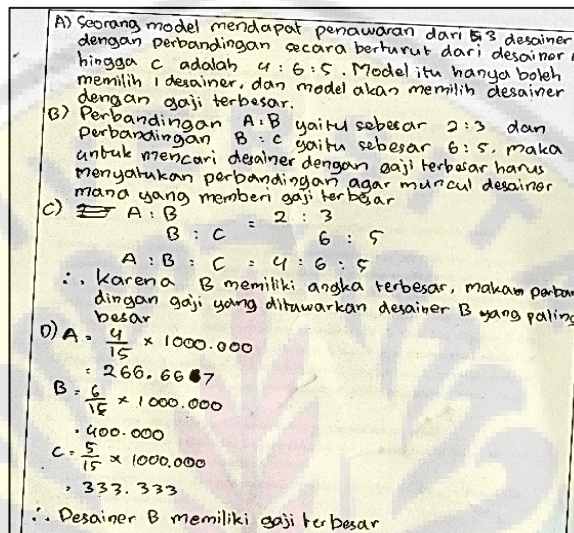 A) Seorang model mendapat penawaran dari 3 desainer
dengan perbandingan secara berturut dari desainer
hingga C adalah 4 : 6 : 5. Model itu hanya boleh
memilih 1 desainer, dan model akan memilih desainer
dengan gaji terbesar.
B) Perbandingan A : B yaitu sebesar 2 : 3 dan
perbandingan B : C yaitu sebesar 6 : 5, maka
untuk mencari desainer dengan gaji terbesar harus
menyatukan perbandingan agar muncul desainer
mana yang memberi gaji terbesar
C) A : B = 2 : 3
B : C 6 : 5
A : B : C = 4 : 6 : 5
∴ Karena B memiliki angka terbesar, maka perban
dingan gaji yang ditawarkan desainer B yang paling
besar
D) A = 4/15 × 1000.000
= 266.667
B = 6/15 × 1000.000
= 400.000
C = 5/15 × 1000.000
= 333.333
∴ Desainer B memiliki gaji terbesar